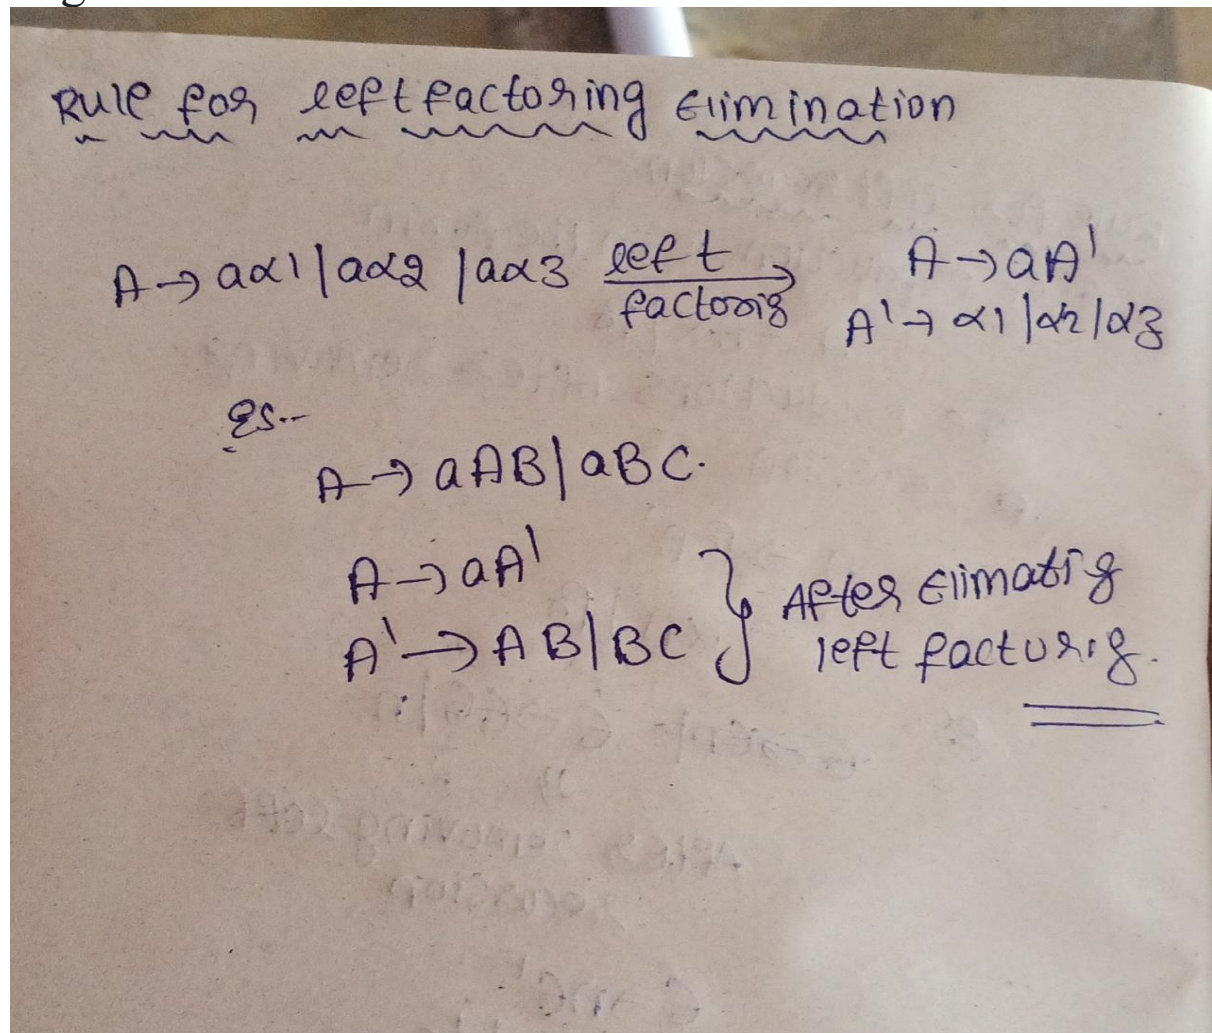 Rule for left factoring Elimination
A → aα1 | aα2 | aα3 left factorig A → aA'
A' → α1 | α2 | α3
A → aAB | aBC.
A → aA'
A' → AB | BC } After Elimatig
left factorig.